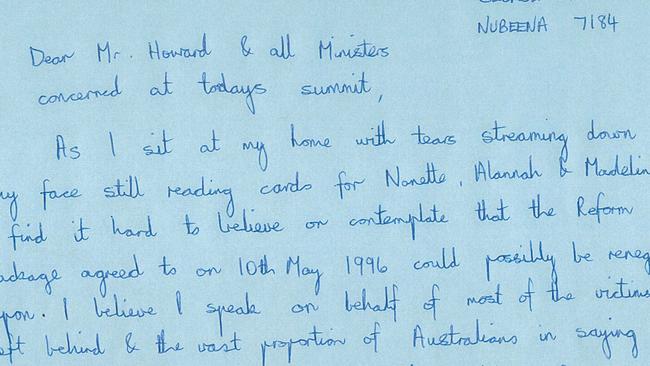 NUBEENA 7184
Dear Mr. Howard & all Ministers
concerned at todays summit,
As I sit at my home with tears streaming down
my face still reading cards for Nanette, Alannah & Madelin
find it hard to believe or contemplate that the Reform
ackage agreed to on 10th May 1996 could possibly be reneg
pon. I believe I speak on behalf of most of the victims
eft behind & the vast proportion of Australians in saying